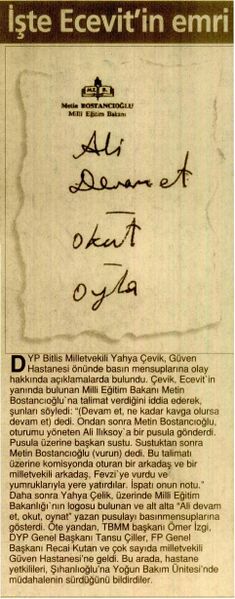 İşte Ecevit'in emri
M.E.B.
Metin BOSTANCIOĞLU
Milli Eğitim Bakanı
Ali
Devam et
—
okut
—
oyla
DYP Bitlis Milletvekili Yahya Çevik, Güven
Hastanesi önünde basın mensuplarına olay
hakkında açıklamalarda bulundu. Çevik, Ecevit'in
yanında bulunan Milli Eğitim Bakanı Metin
Bostancıoğlu'na talimat verdiğini iddia ederek,
şunları söyledi: "(Devam et, ne kadar kavga olursa
devam et) dedi. Ondan sonra Metin Bostancıoğlu,
oturumu yöneten Ali Ilıksoy'a bir pusula gönderdi.
Pusula üzerine başkan sustu. Sustuktan sonra
Metin Bostancıoğlu (vurun) dedi. Bu talimatı
üzerine komisyonda oturan bir arkadaş ve bir
milletvekili arkadaş, Fevzi'ye vurdu ve
yumruklarıyla yere yatırdılar. İspatı onun notu."
Daha sonra Yahya Çelik, üzerinde Milli Eğitim
Bakanlığı'nın logosu bulunan ve alt alta "Ali devam
et, okut, oynat" yazan pusulayı basınmensuplarına
gösterdi. Öte yandan, TBMM başkanı Ömer İzgi,
DYP Genel Başkanı Tansu Çiller, FP Genel
Başkanı Recai Kutan ve çok sayıda milletvekili
Güven Hastanesi'ne geldi. Bu arada, hastane
yetkilileri, Şıhanlıoğlu'na Yoğun Bakım Ünitesi'nde
müdahalenin sürdüğünü bildirdiler.